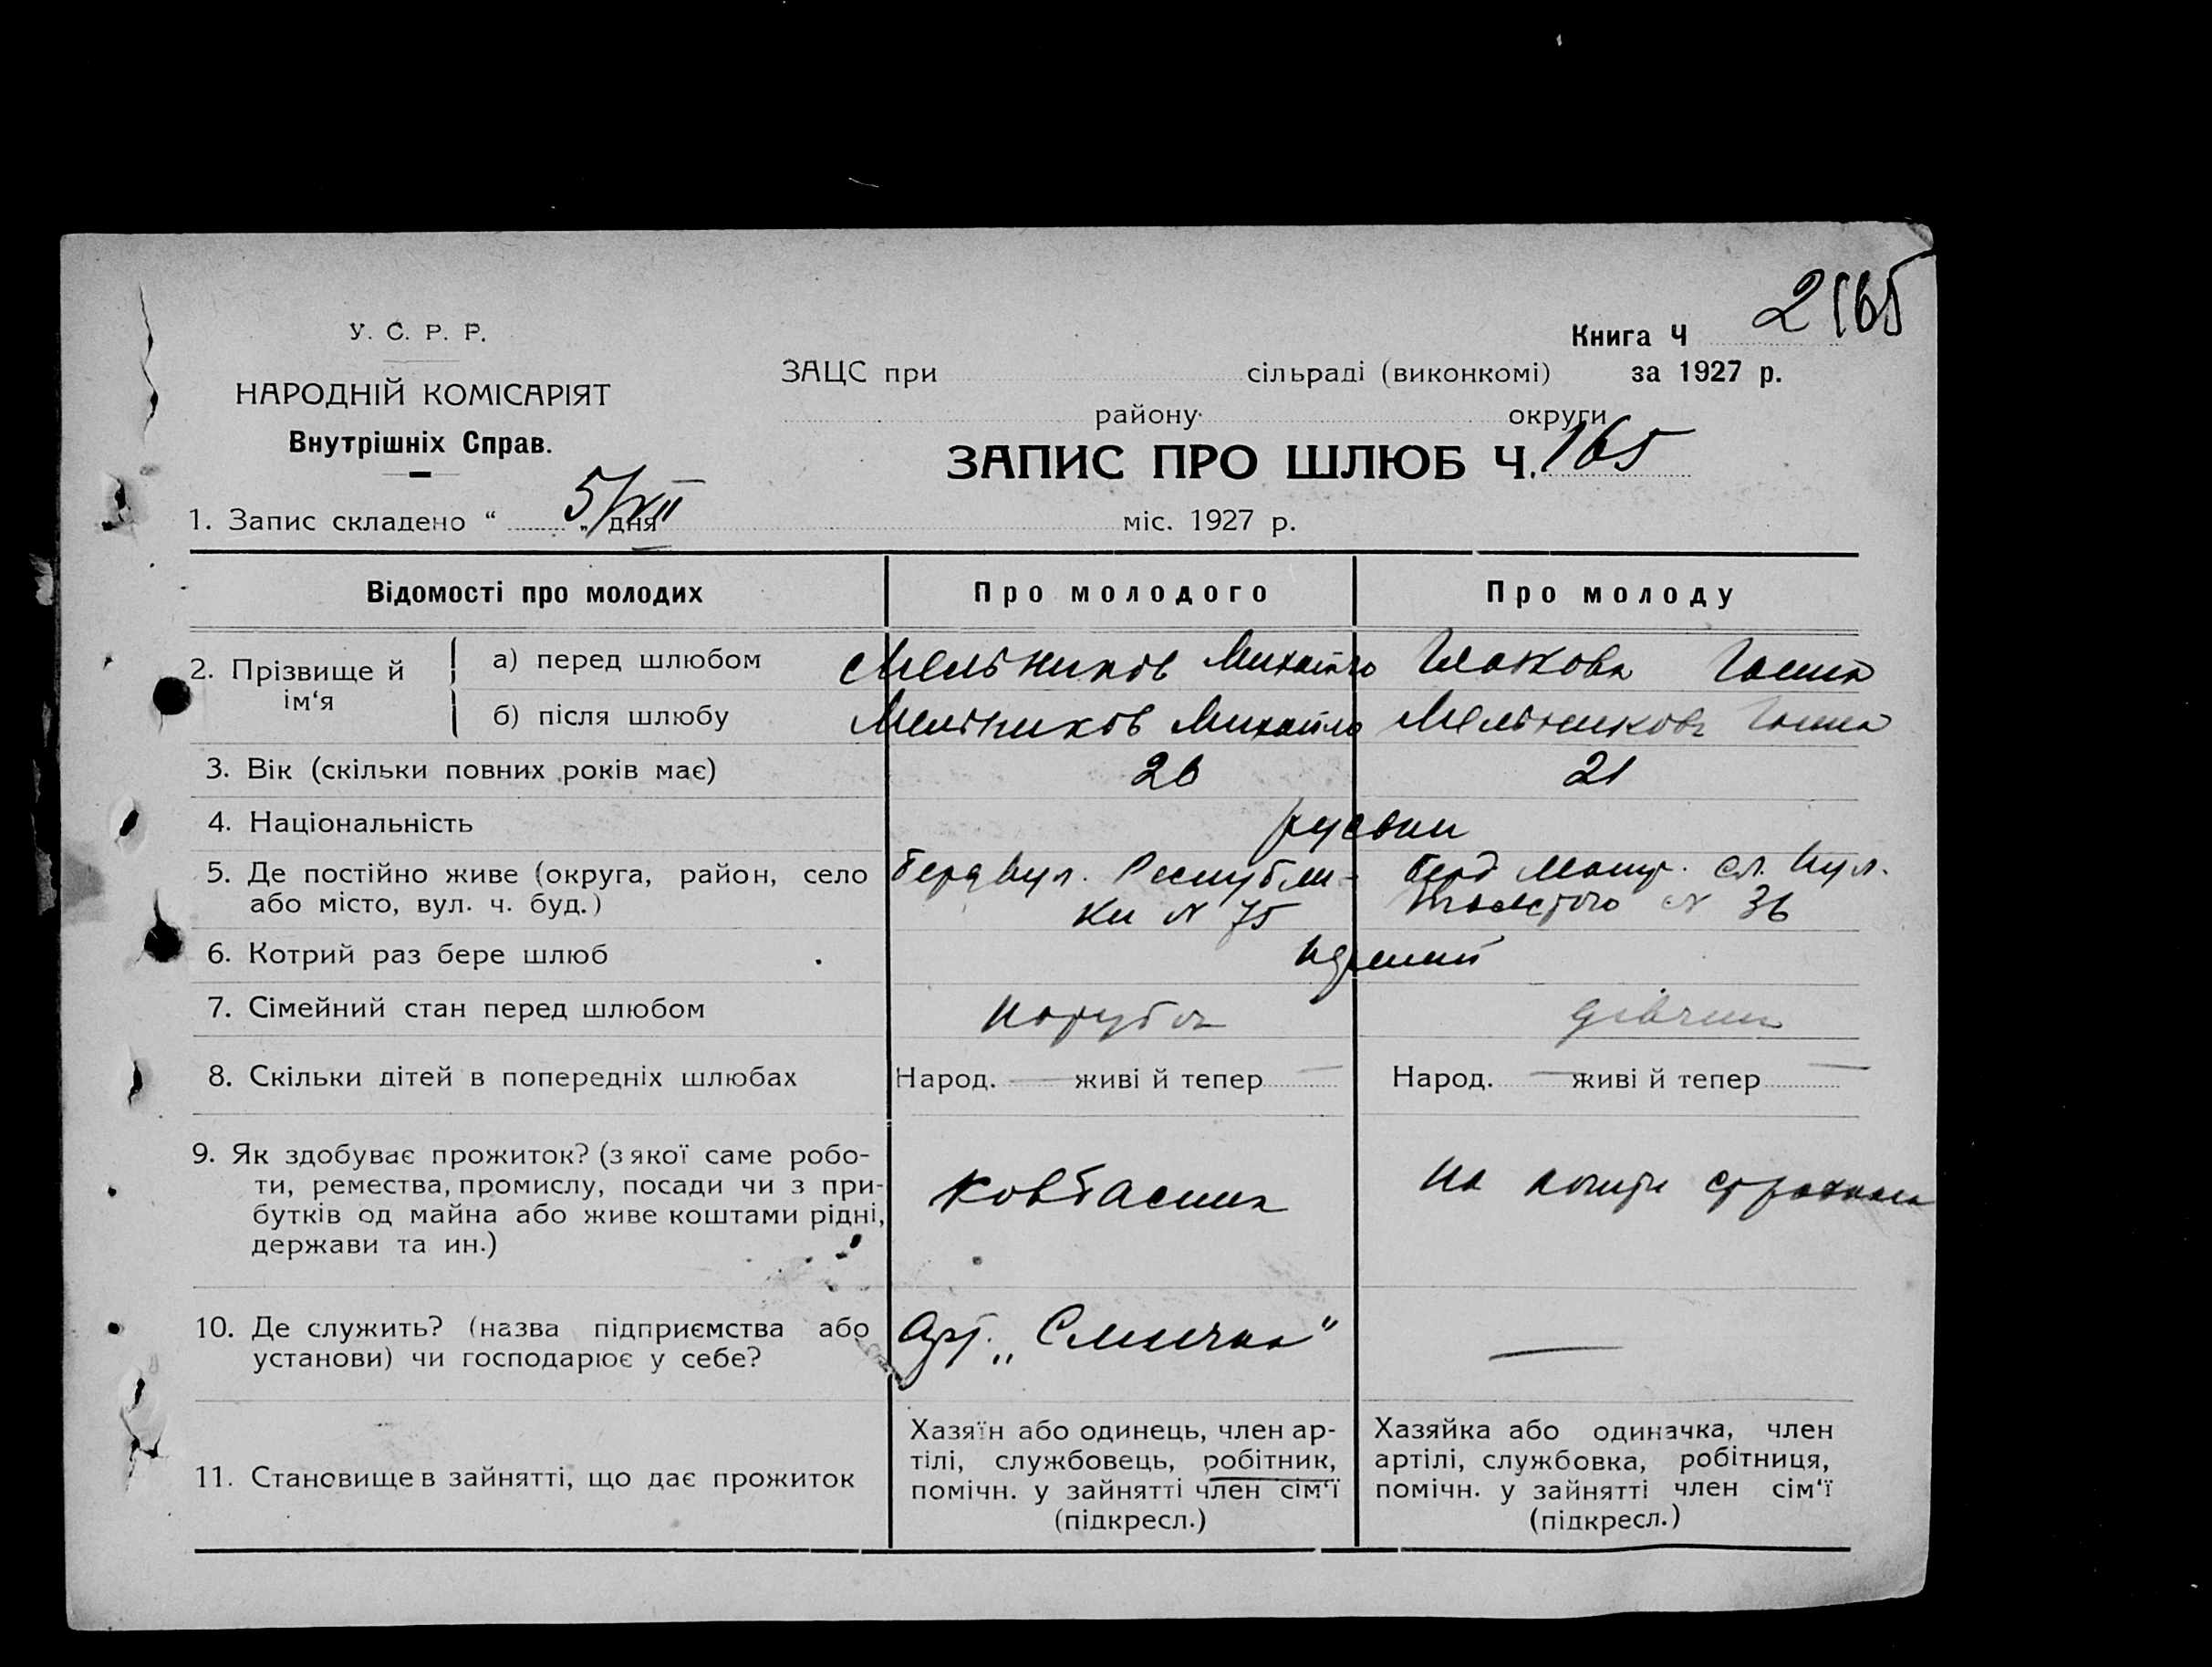 2165
У. С. Р. Р.
Книга Ч
ЗАЦС при сільраді (виконкомі) за 1927 р.
НАРОДНІЙ КОМІСАРІЯТ
району округи
Внутрішніх Справ.
ЗАПИС ПРО ШЛЮБ Ч. 165
1. Запис складено “ 5/XII „ дня міс. 1927 р.
Відомості про молодих Про молодого Про молоду
2. Прізвище й ім‘я
а) перед шлюбом Мельников Михайло
б) після шлюбу Мельников Михайло Мельникова
3. Вік (скільки повних років має) 26 21
4. Національність руські
5. Де постійно живе (округа, район, село
або місто, вул. ч. буд.)
Берд вул. Республі-
ки № 75
Берд сл. вул.
Толстого № 36
6. Котрий раз бере шлюб перший
7. Сімейний стан перед шлюбом парубок дівчина
8. Скільки дітей в попередніх шлюбах Народ. — живі й тепер — Народ. — живі й тепер —
9. Як здобуває прожиток? (з якої саме робо-
ти, ремества, промислу, посади чи з при-
бутків од майна або живе коштами рідні,
держави та ин.)
Ковбасник
На кошти
10. Де служить? (назва підприємства або
установи) чи господарює у себе?
Арт. „Смичка“
—
11. Становище в зайнятті, що дає прожиток
Хазяїн або одинець, член ар-
тілі, службовець, робітник,
помічн. у зайнятті член сім‘ї
(підкресл.)
Хазяйка або одиначка, член
артілі, службовка, робітниця,
помічн. у зайнятті член сім‘ї
(підкресл.)